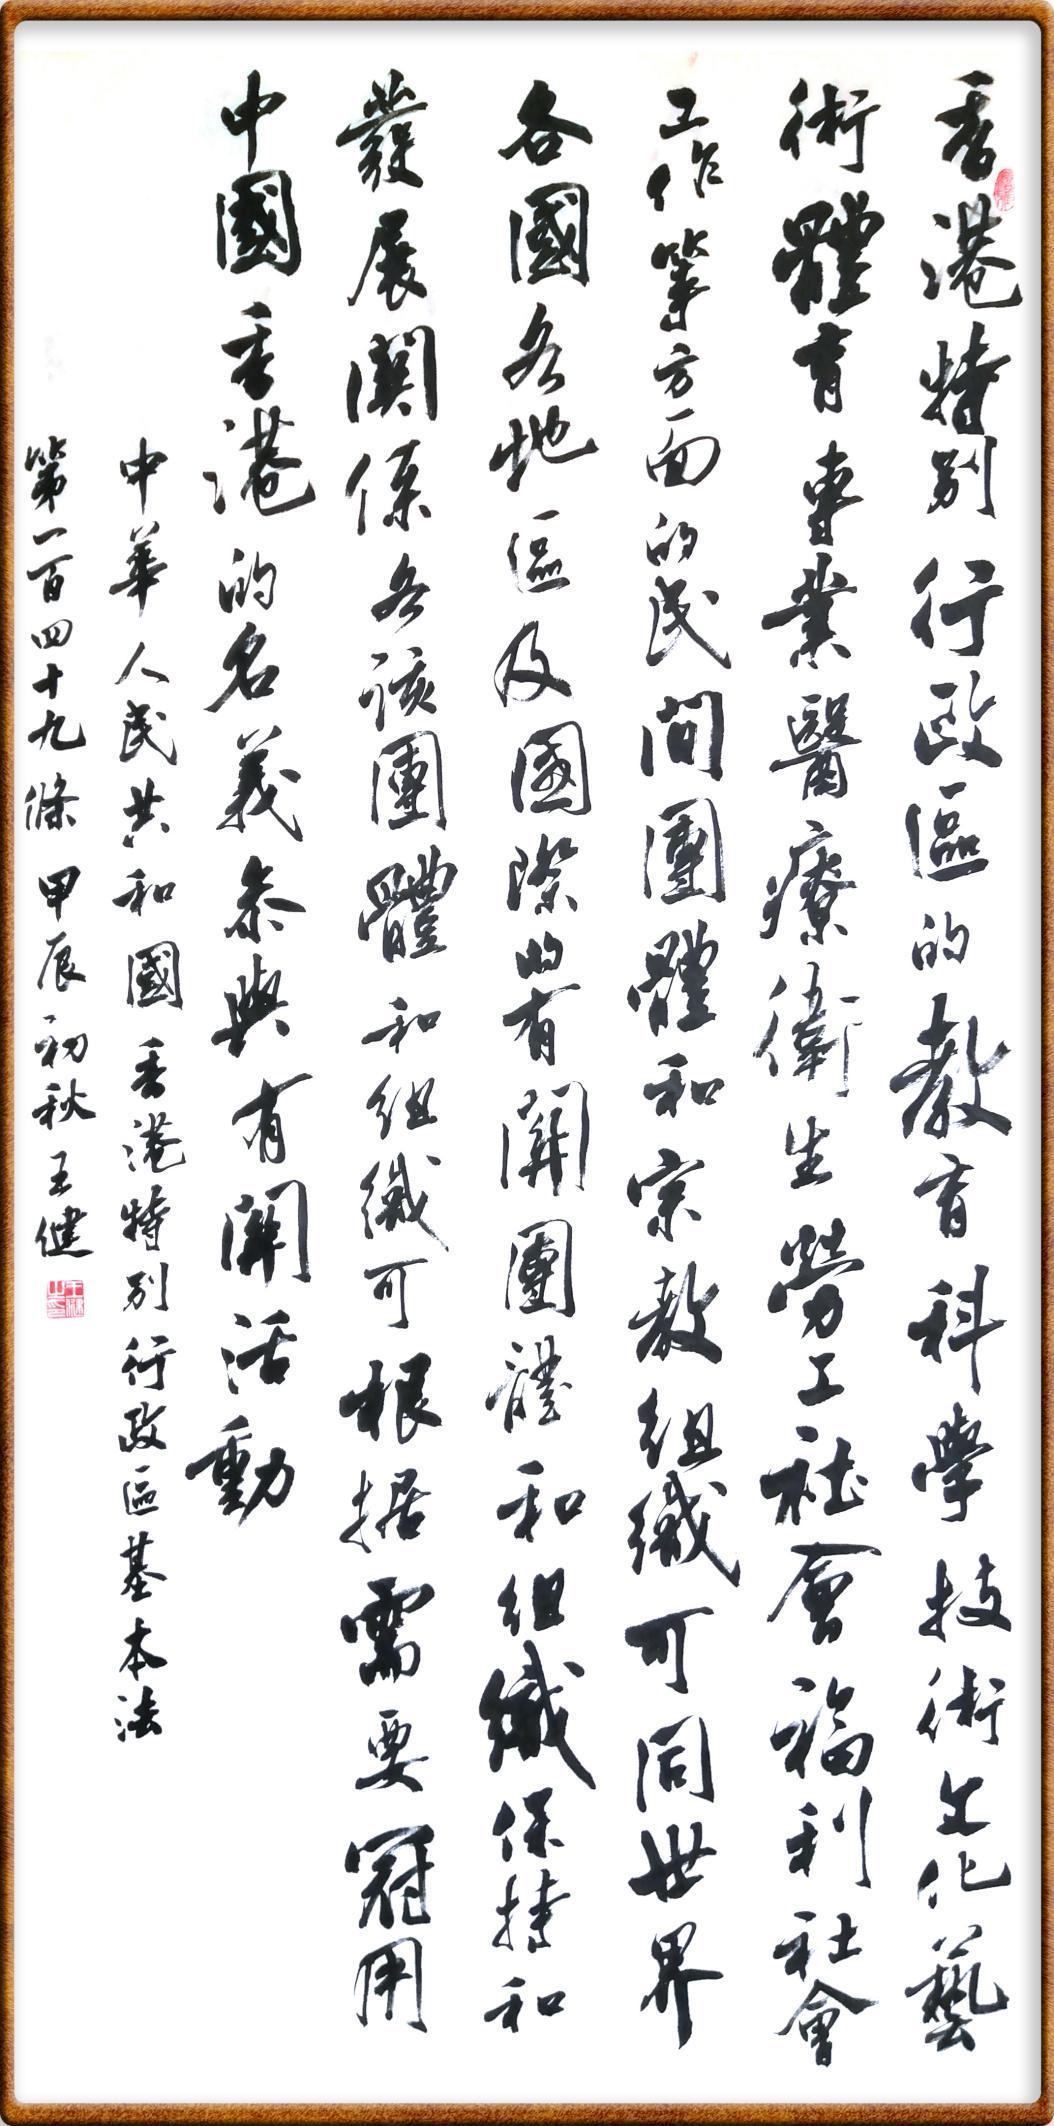 香港特別行政區的教育科學技術文化藝
術體育專業醫療衛生勞工社會福利社會
工作等方面的民間團體和宗教組織可同世界
各國各地區及國際的有關團體和組織保持和
發展關係各該團體和組織可根据需要冠用
中國香港的名義參與有關活動
中華人民共和國香港特別行政區基本法
第一百四十九條甲辰初秋王健